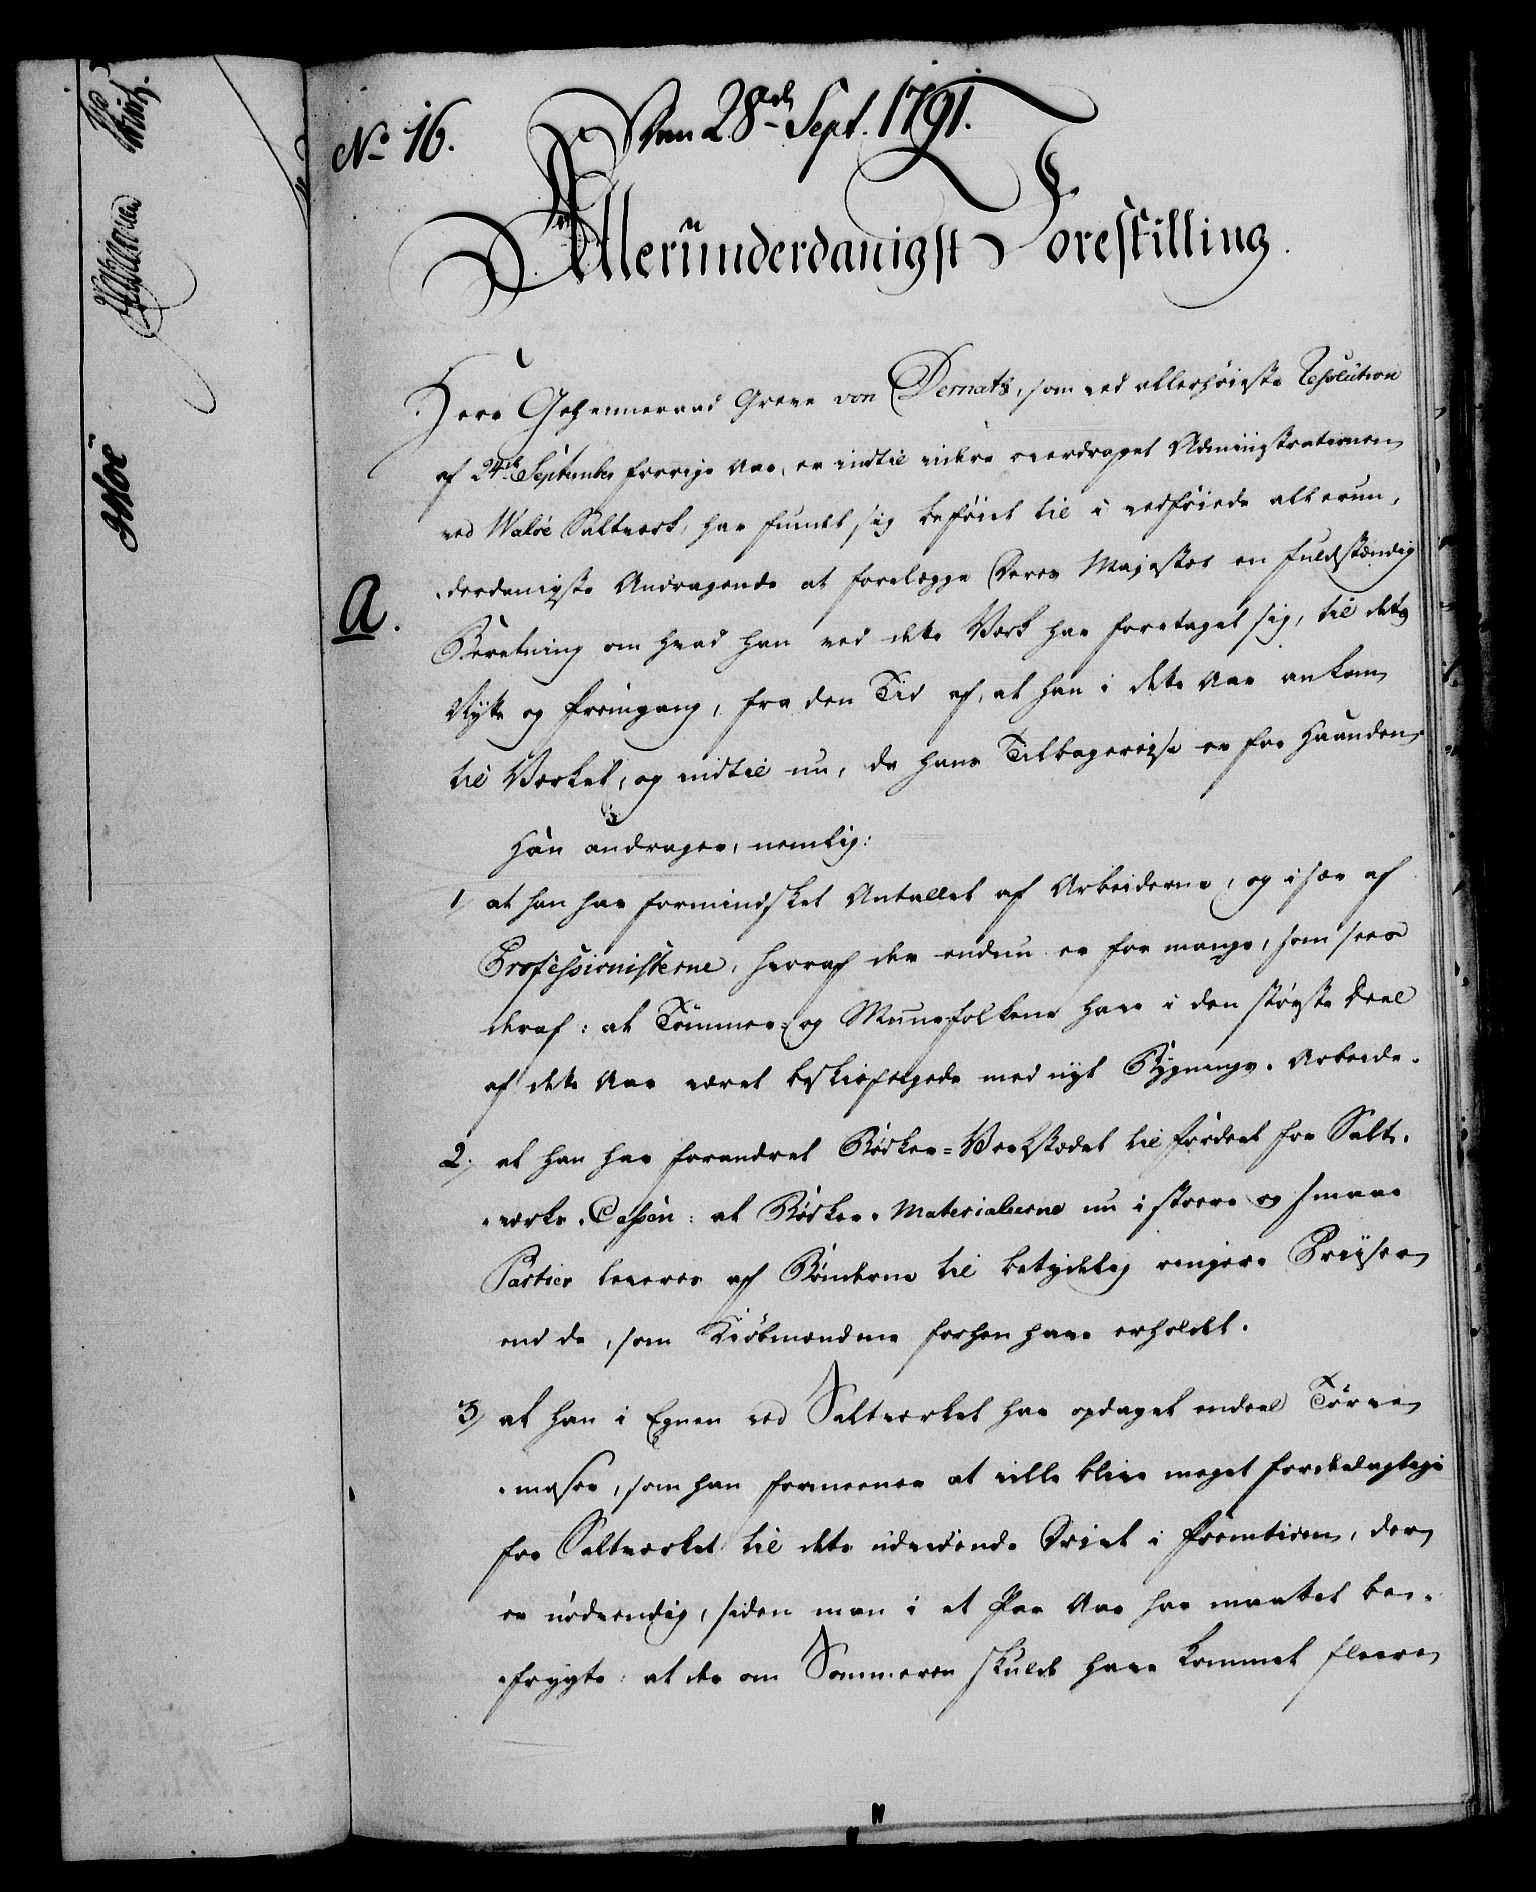 No 16.
Den 28de Sept. 1791.
Allerunderdanigst Forestilling.
Herr Geheimeraad Greve von Dernath, som ved allerhøieste Resolution
af 24de September forrige Aar, er indtil videre overdraget Administrationen
ved Waløe Saltverk, har fundet sig beføiet til i vedføiede allerun-
-derdanigste Andragende at forelægge Deres Majestet en fuldstændig
A.
Beretning om hvad han ved dette Værk har foretaget sig, til dets
Nytte og Fremgang, fra den Tid af, at han i dette Aar ankom
til Værket, og indtil nu, da hans Tilbagereise er for Haanden.
Han andrager, nemlig:
1/ at han har formindsket Antallet af Arbeiderne, og især af
Professionisterne, hvoraf der endnu er for mange, som sees
deraf: at Tømmer- og Muurfolkene have i den største Deel
af dette Aar været beskieftigede med nyt Bygnings-Arbeide.
2/ at han har forandret Bødker-Værkstædet til Fordeel for Salt-
-verks-Cassen: at Bødker-Materialierne nu i større og smaae
Partier leveres af Bønderne til betydelig ringere Priiser
end de, som Kiøbmændene forhen have erholdt.
3/ at han i Egnen ved Saltverket har opdaget endeel Tørve-
-moser, som han formeener at ville blive meget fordeelagtige
for Saltverket til dets udvidende Drivt i Fremtiden, der
er nødvendig, siden man i et Par Aar har maattet be-
-frygte: at der om Sommeren skulde have kommet fleere